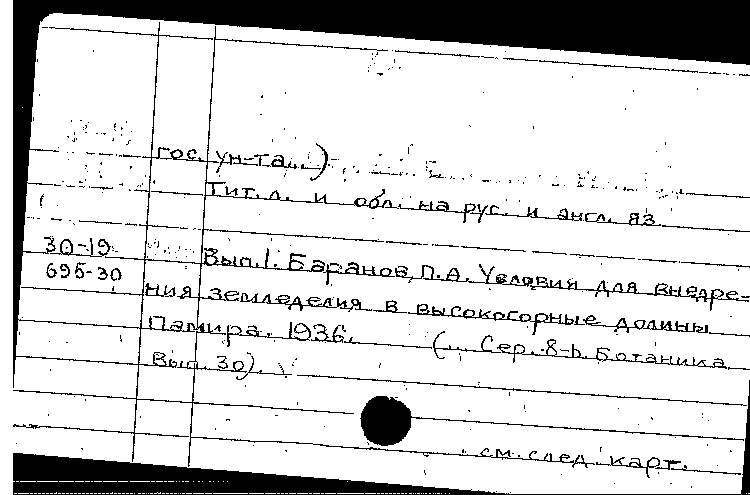 гос. ун-та...)
Тит. л. и обл. на рус. и англ. яз.
30-19
695-30
Вып.1. Баранов, П.А. Условия для внедре-
ния земледелия в высокогорные долины
Памира. 1936. (... Сер. 8-b. Ботаника
Вып. 30).
см. след. карт.